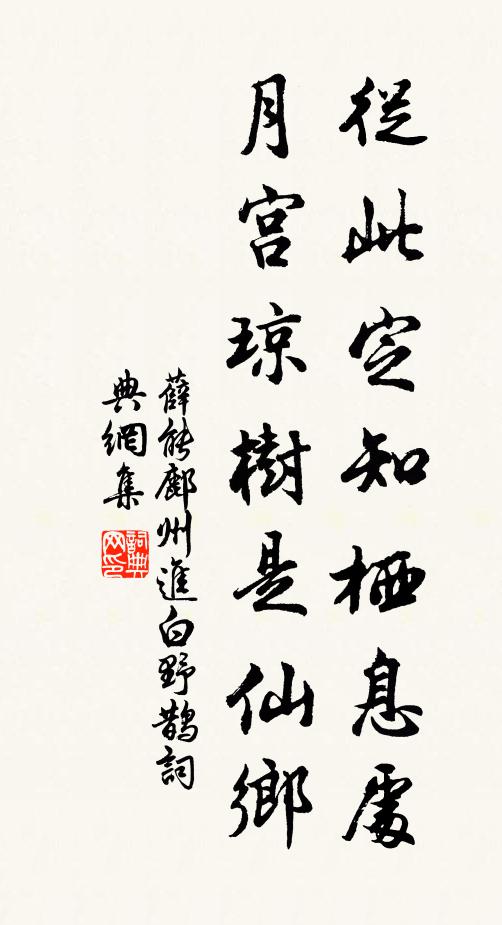 從此定知栖息處
月宮琼樹是仙鄉
薛能鄜州進白野鵲詞
典網集
詞典
网印